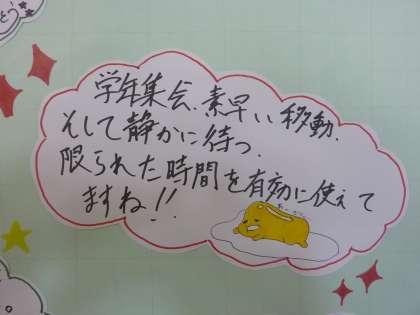 学年集会、素早い移動、
そして静かに待つ、
限られた時間を有効に使えて
ますね!!